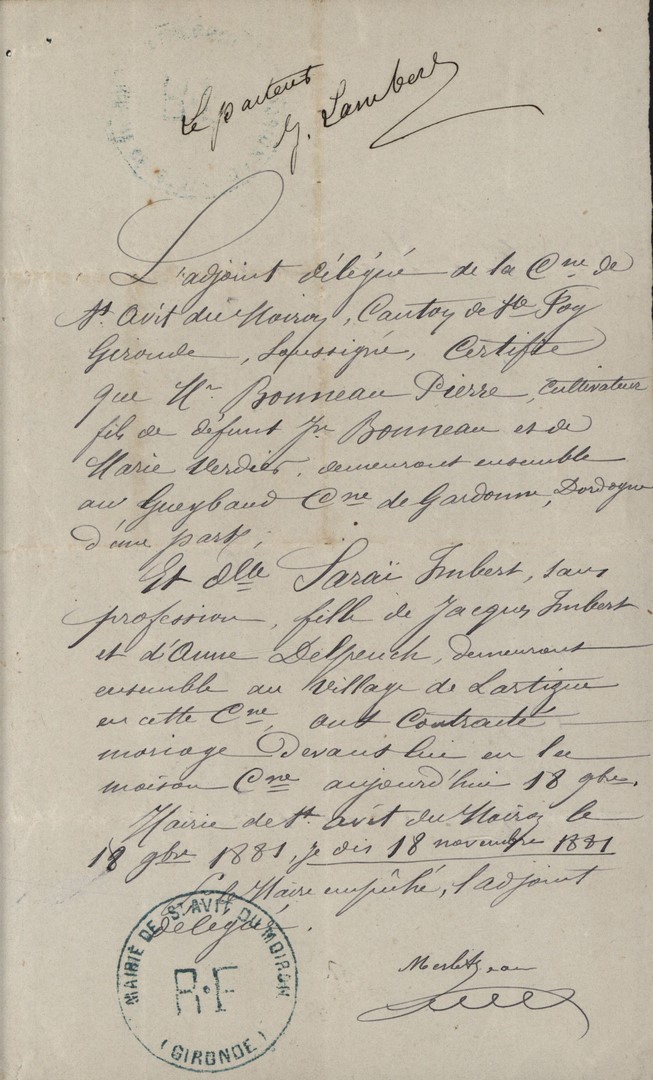 Le pasteur
G. Lambert
L'adjoint délégué de la Cne de
St Avit du Moiron, Canton de Ste Foy
Gironde, soussigné, Certifie
que Mr Bonneau Pierre, cultivateur
fils de défunt Jn Bonneau et de
Marie Verdier, demeurant ensemble
au Gueybaud Cne de Gardonne, Dordogne
d'une part,
Et Dlle Saraï Imbert, sans
profession, fille de Jacques Imbert
et d'Anne Delpeuch, demeurant
ensemble au Village de Lartigue
en cette Cne, ont Contracté
mariage Devant lui en la
maison Cne aujourd'hui 18 9bre.
Mairie de St Avit du Moiron le
18 9bre 1881, je dis 18 novembre 1881
Le Maire empêché, l'adjoint
délégué.
MAIRIE DE ST AVIT DU MOIRON
R·F
(GIRONDE)